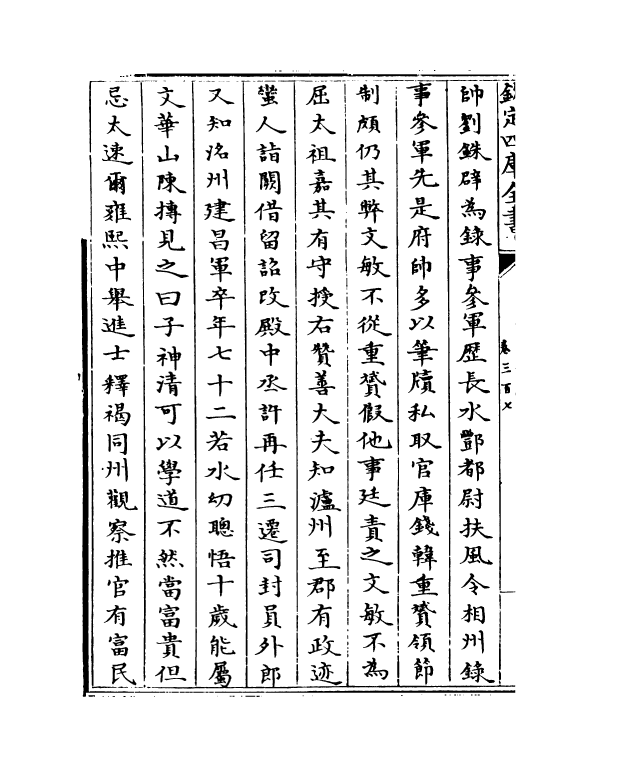 欽定四庫全書
卷三百七
帥劉銖辟為錄事參軍歴長水酆都尉扶風令相州錄
事參軍先是府帥多以筆牘私取官庫錢韓重贇領節
制頗仍其弊文敏不從重贇假他事廷責之文敏不為
屈太祖嘉其有守授右贊善大夫知瀘州至郡有政迹
蠻人詣闕借留詔改殿中丞許再任三遷司封員外郎
又知洺州建昌軍卒年七十二若水幼聰悟十歲能屬
文華山陳摶見之曰子神清可以學道不然當富貴但
忌太速爾雍熙中舉進士釋褐同州觀察推官有富民